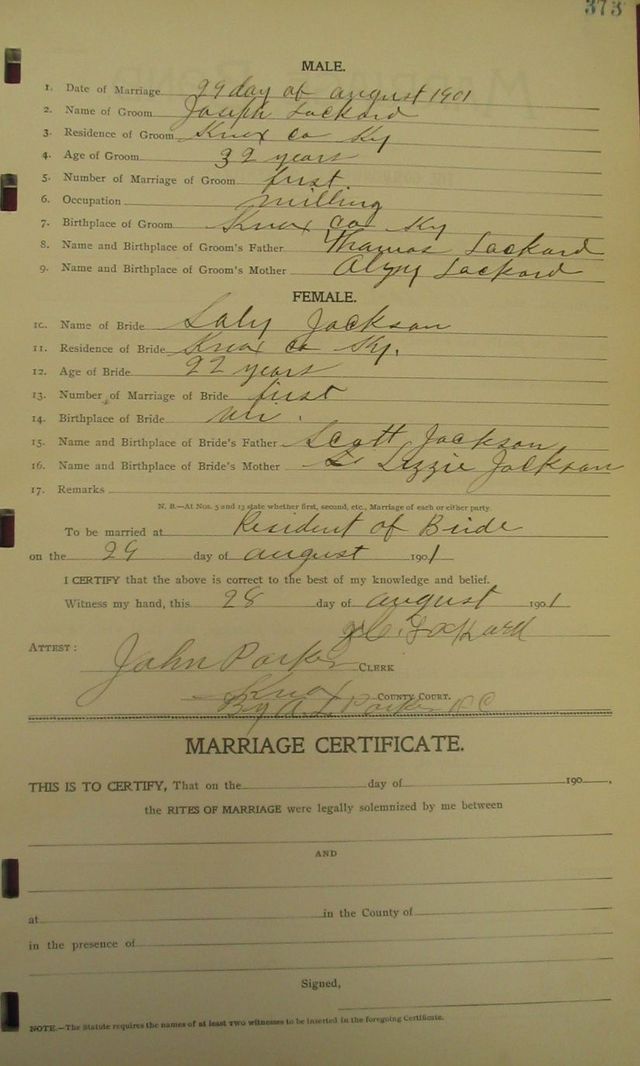 373
MALE.
1. Date of Marriage 29 day of august 1901
2. Name of Groom Joseph Lockard
3. Residence of Groom Knox co Ky
4. Age of Groom 32 years
5. Number of Marriage of Groom first
6. Occupation milling
7. Birthplace of Groom Knox co Ky
8. Name and Birthplace of Groom's Father Thomas Lockard
9. Name and Birthplace of Groom's Mother Lockard
FEMALE.
10. Name of Bride Saly Jackson
11. Residence of Bride Knox co Ky.
12. Age of Bride 22 years
13. Number of Marriage of Bride first
14. Birthplace of Bride
15. Name and Birthplace of Bride's Father Scott Jackson
16. Name and Birthplace of Bride's Mother Lizzie Jackson
17. Remarks
N. B.—At Nos. 5 and 13 state whether first, second, etc., Marriage of each or either party.
To be married at Resident of Bride
on the 29 day of august 1901
I CERTIFY that the above is correct to the best of my knowledge and belief.
Witness my hand, this 28 day of august 1901
Lockard
ATTEST: John Parker CLERK
Knox COUNTY COURT.
By A L Parker D C
MARRIAGE CERTIFICATE.
THIS IS TO CERTIFY, That on the day of 190 .
the RITES OF MARRIAGE were legally solemnized by me between
AND
at in the County of
in the presence of
Signed,
NOTE.—The Statute requires the names of at least two witnesses to be inserted in the foregoing Certificate.